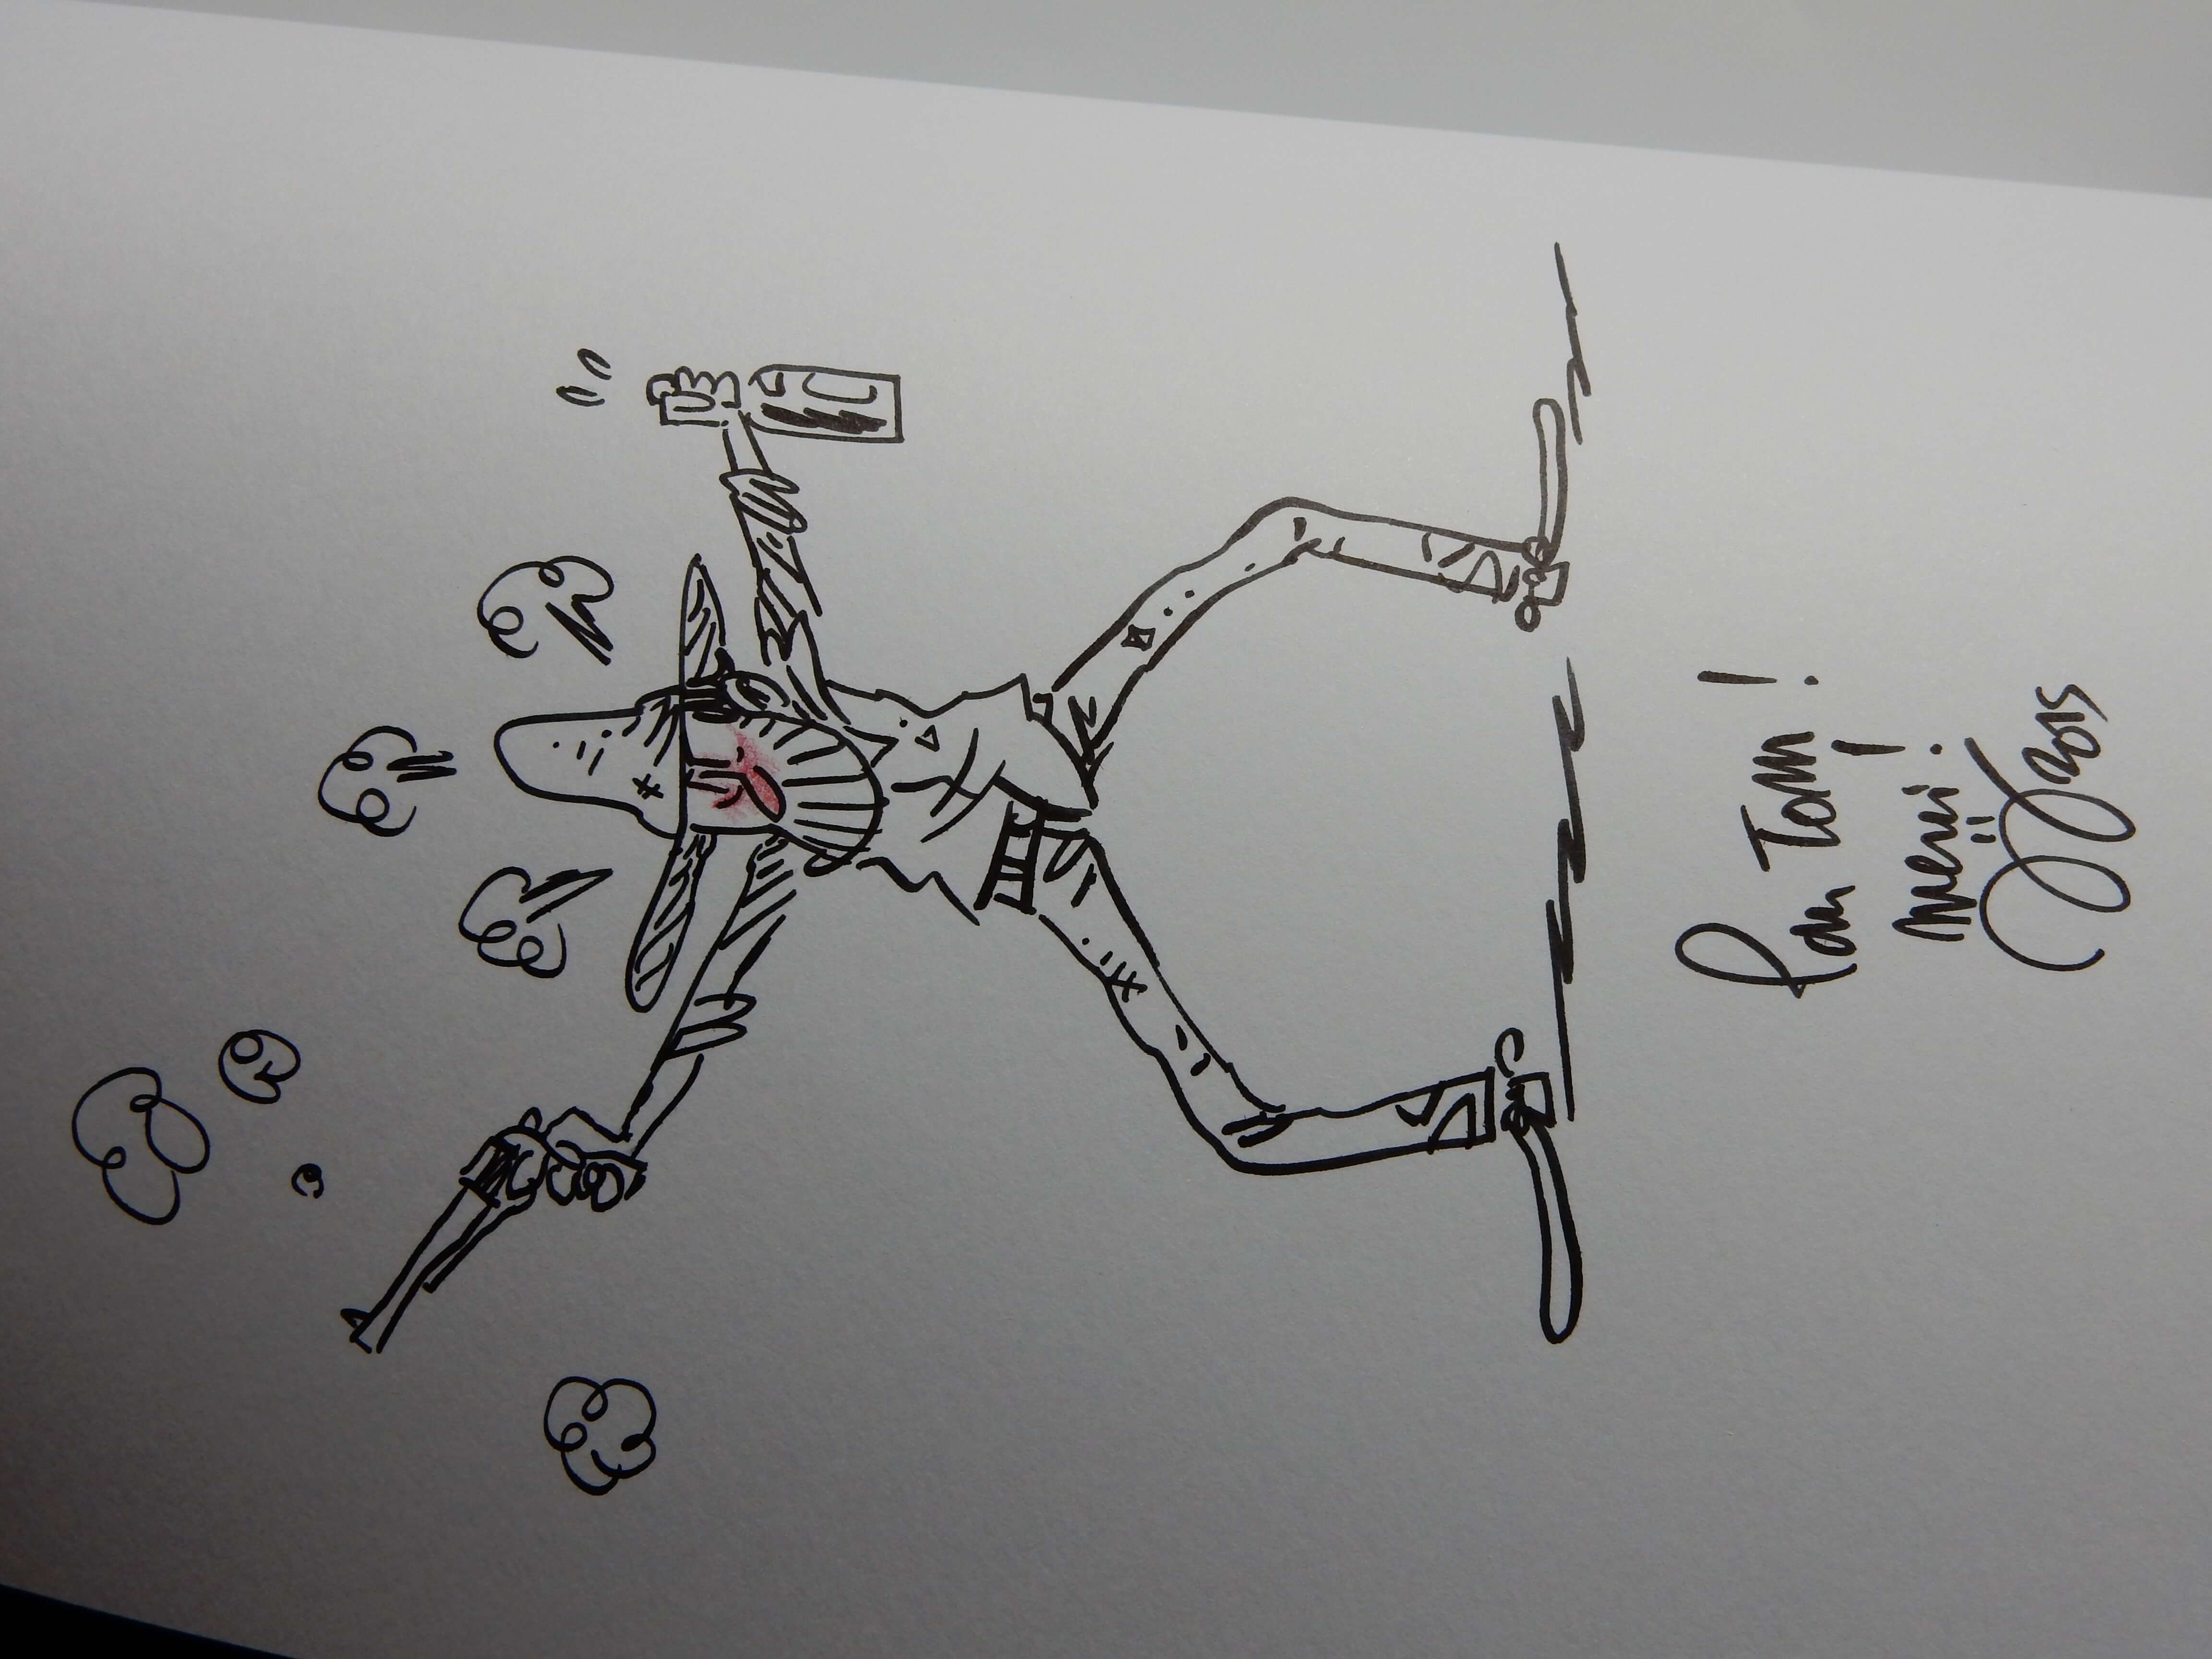 Pour Tom !
merci !
2015